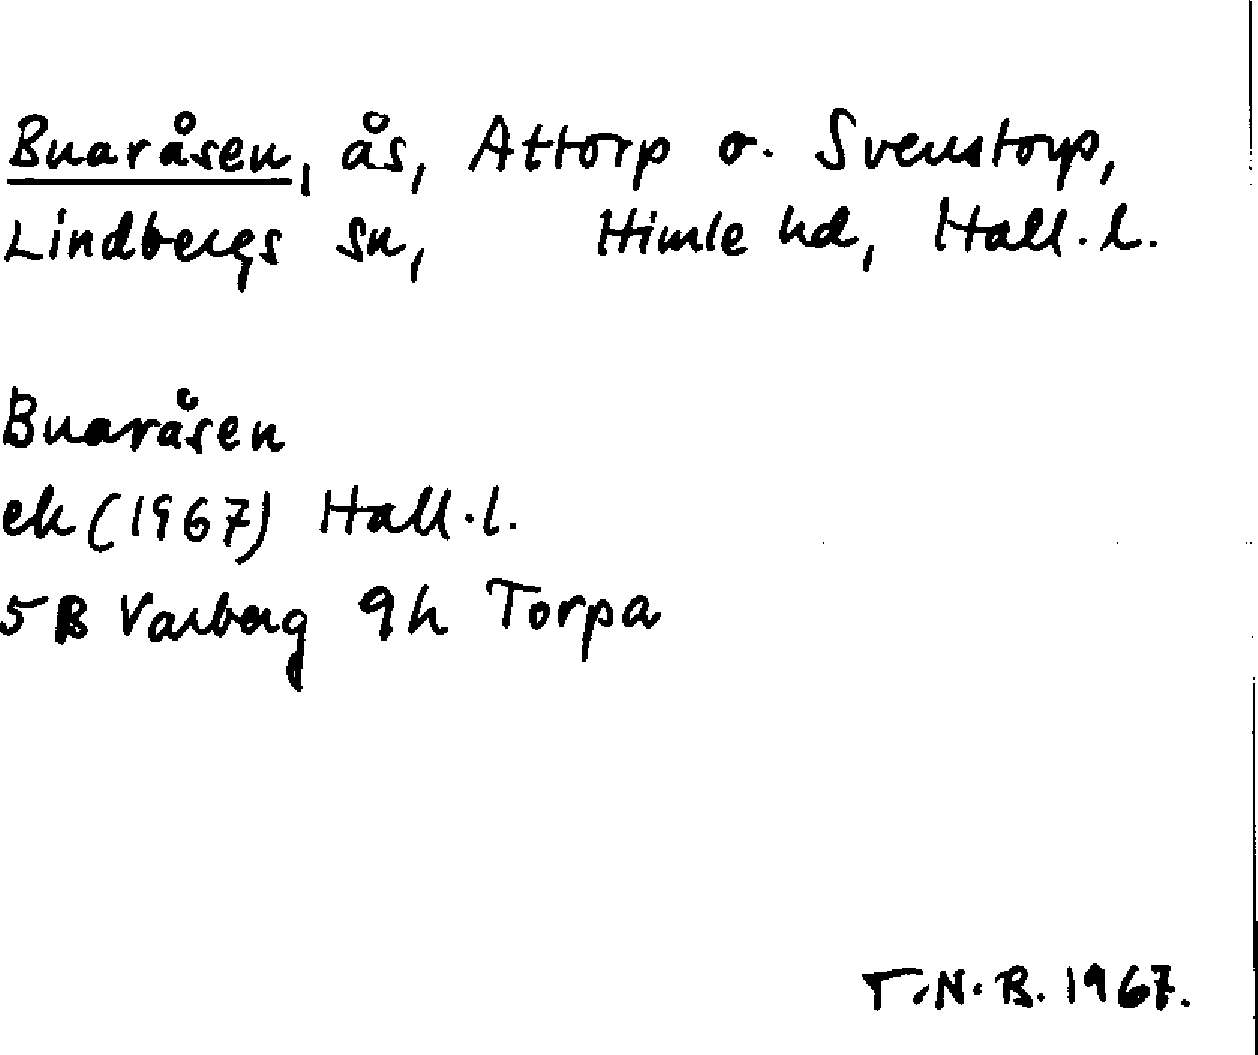 Buaråsen, ås, Attorp o. Svenstorp,
Lindbergs sn, Himle hd, Hall.l.
Buaråsen
ek (1967) Hall.l.
5B Varberg 9h Torpa
T.N.B. 1967.